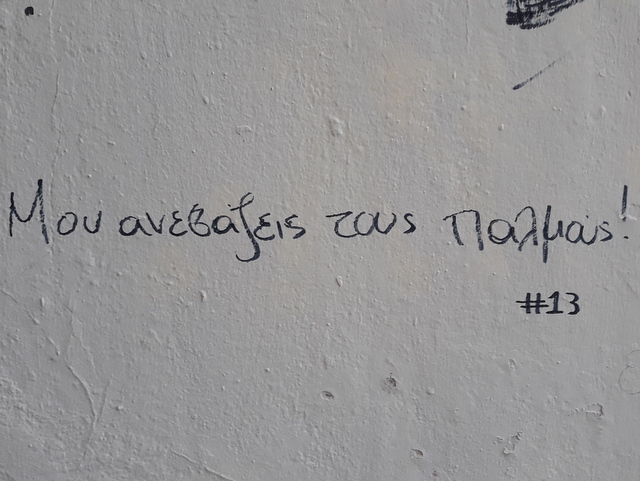 Μου ανεβάζεις τους παλμούς!
#13